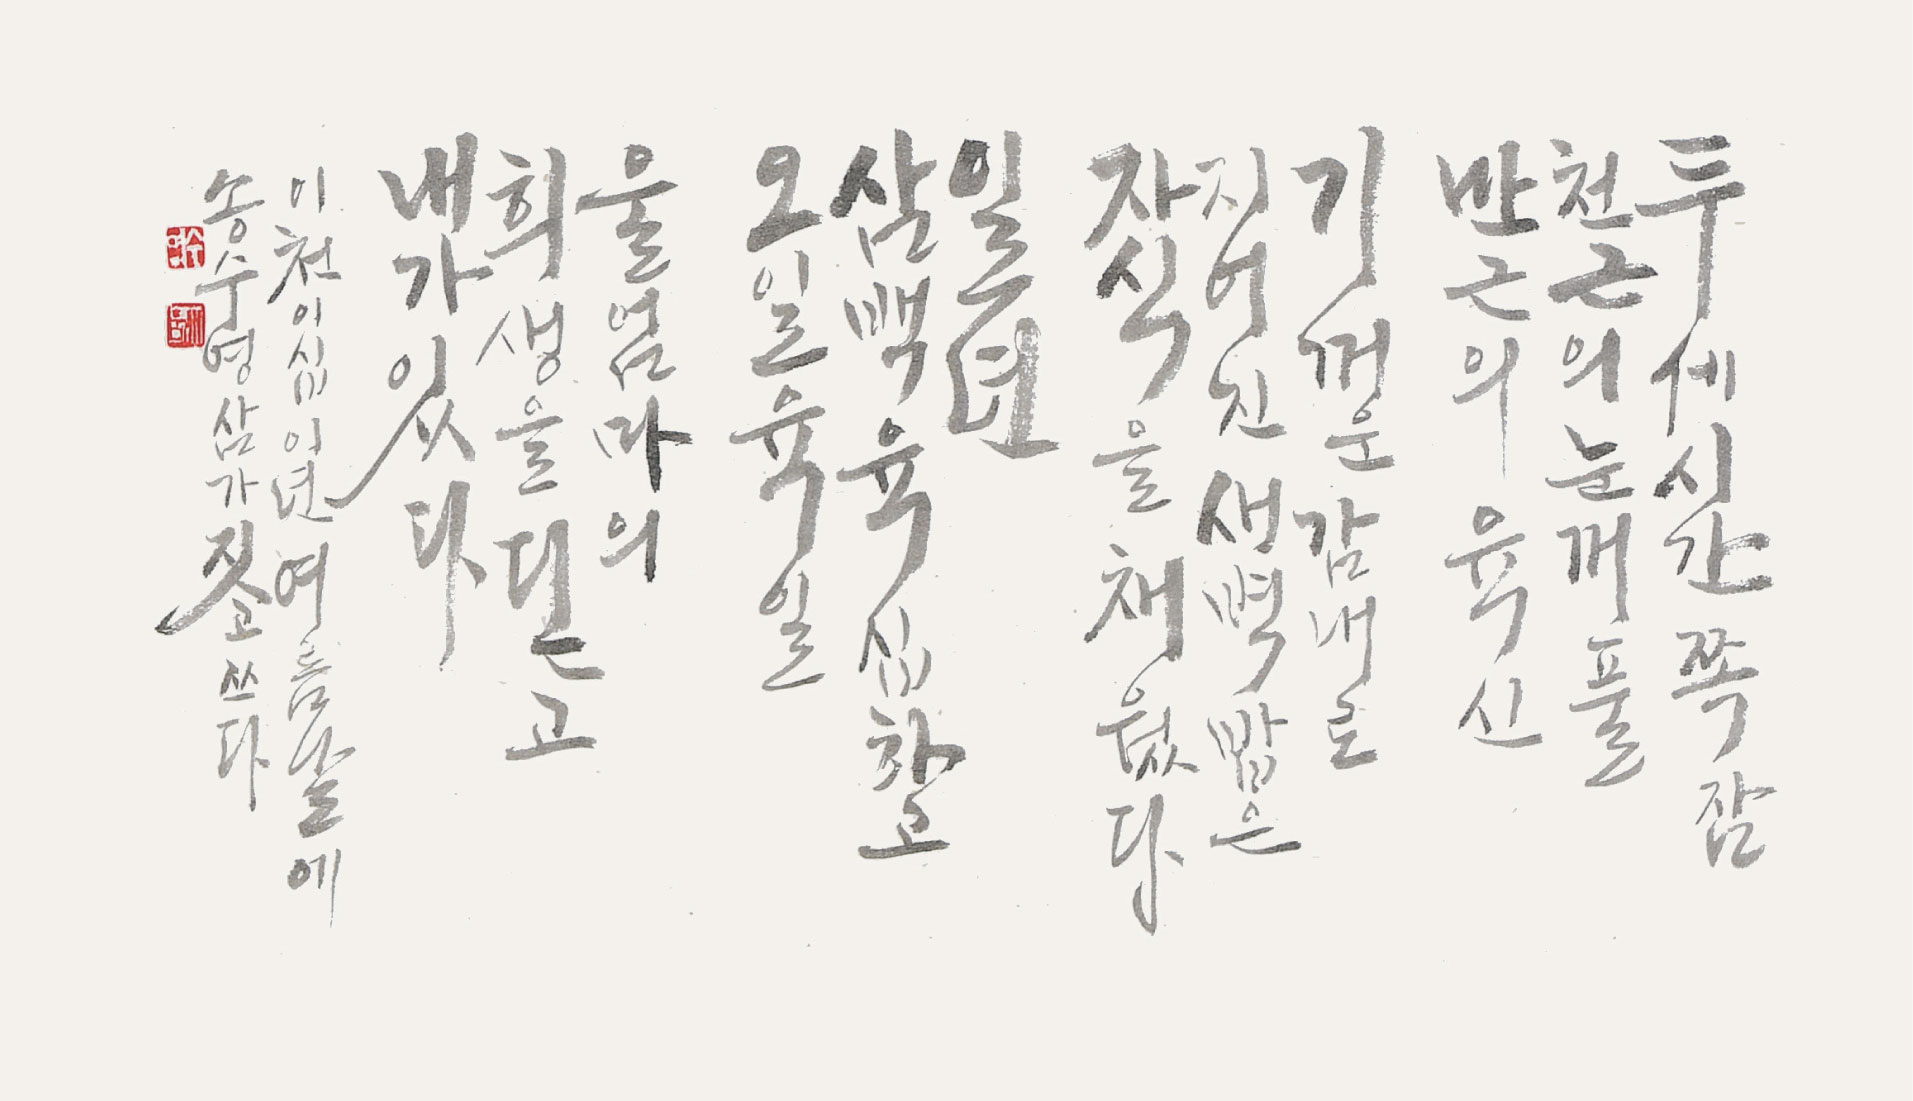 두세시간 쪽잠
천근의 눈꺼풀
만근의 육신
기꺼운 감내로
지어진 새벽밥은
자식을 채웠다
일년
삼백육십하고
오일육일
울엄마의
희생을 딛고
내가 있다
이천이십이년 여름날에
송수영 삼가 짓고 쓰다